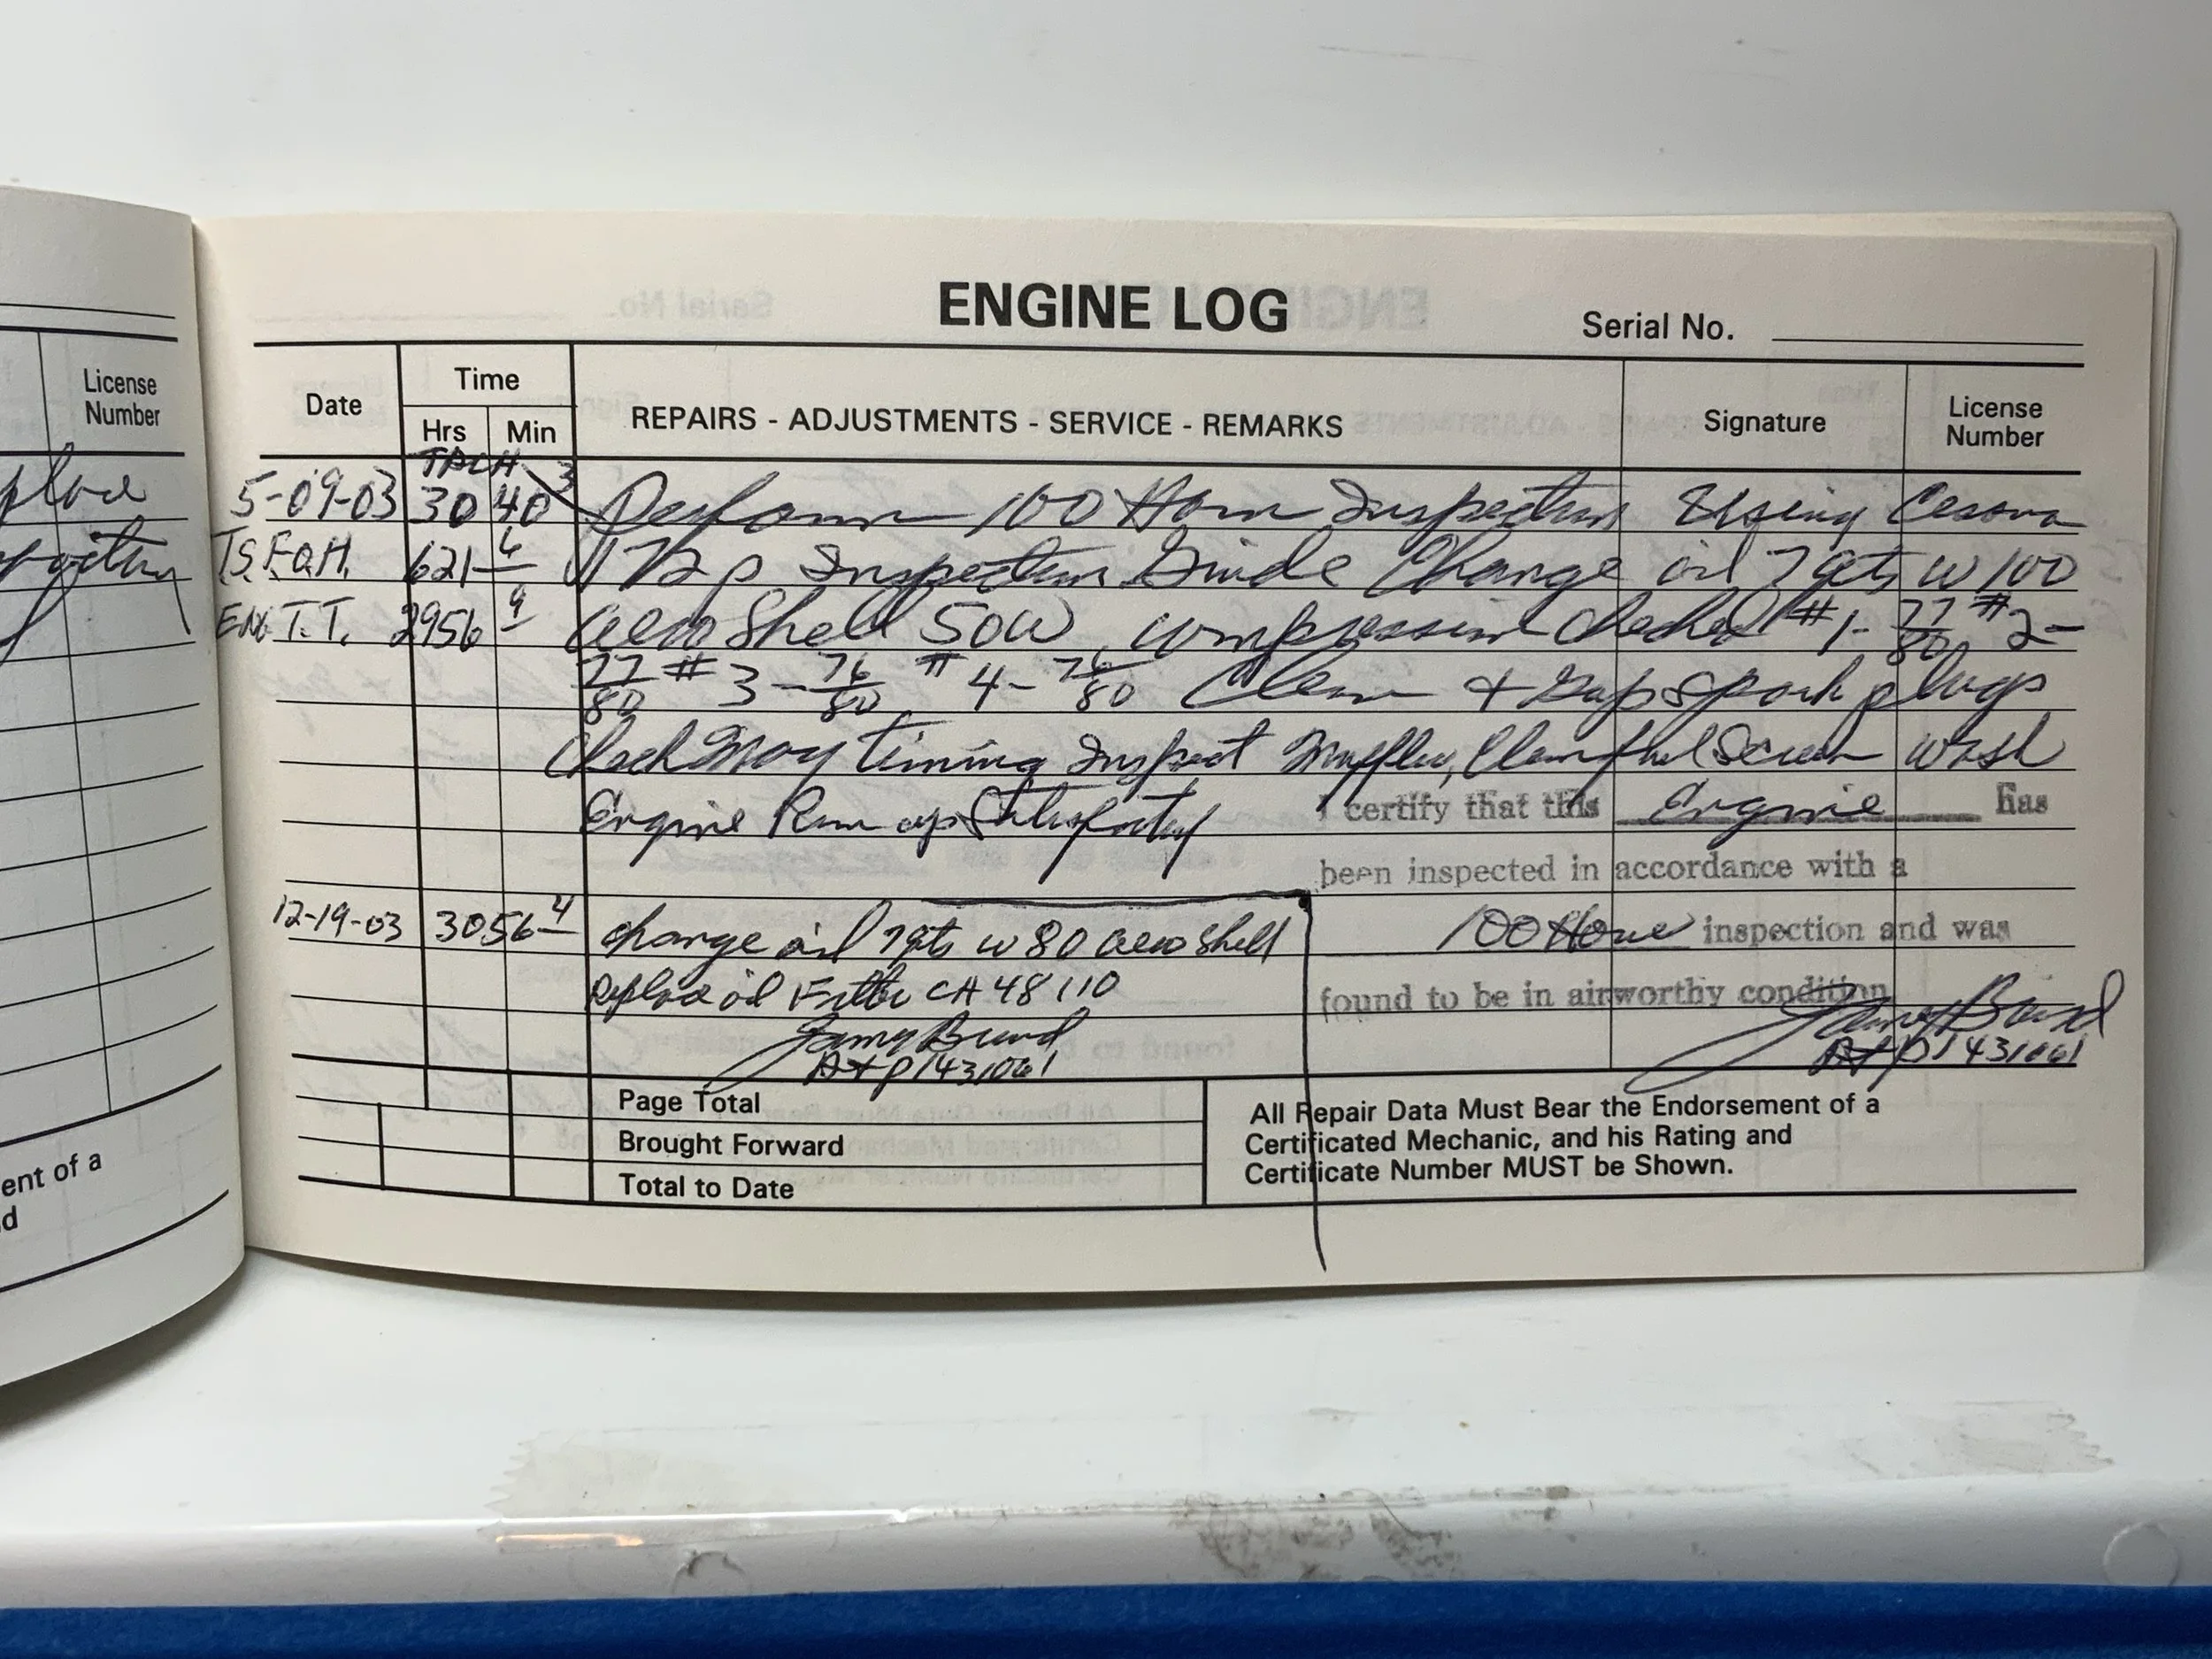 ENGINE LOG
Serial No.
License Number
Date
Time
Hrs
Min
REPAIRS - ADJUSTMENTS - SERVICE - REMARKS
Signature
License Number
TACH
5-09-03 3040 3 Perform 100 Hour Inspection Using Cessna
T.S.F.O.H. 621 6 172 p Inspection Guide Change oil 7 qts w 100
ENG T.T. 2956 9 Aero Shell 50W, compression checked #1- 77/80 #2-
77/80 #3- 76/80 #4- 76/80 Clean + Gap Spark plugs
Check Mag timing Inspect Muffler, Clean fuel Screen wash
Engine Run up Satisfactory
I certify that this Engine has
been inspected in accordance with a
100 Hour inspection and was
found to be in airworthy condition
A+P 1431061
12-19-03 3056 4 change oil 7qts w 80 aero shell
Replace oil Filter CH 48110
A+P 1431061
Page Total
Brought Forward
Total to Date
All Repair Data Must Bear the Endorsement of a
Certificated Mechanic, and his Rating and
Certificate Number MUST be Shown.
place
ent of a
d